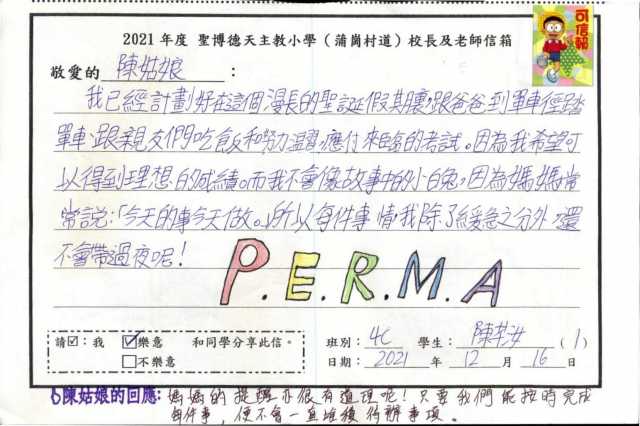 2021 年度 聖博德天主教小學（蒲崗村道）校長及老師信箱
可信報
敬愛的 陳姑娘 ：
我已經計劃好在這個漫長的聖誕假期裏，跟爸爸到單車徑踏
單車、跟親友們吃飯和努力溫習，應付來臨的考試。因為我希望可
以得到理想的成績。而我不會像故事中的小白兔，因為媽媽常
常說：「今天的事今天做。」所以每件事情，我除了緩急之分外，還
不會帶過夜呢！
P.E.R.M.A
請☑：我 ☑樂意 和同學分享此信。
□不樂意
班別： 4C 學生： 陳 (1)
日期： 2021 年 12 月 16 日
陳姑娘的回應：媽媽的提醒亦很有道理呢！只要我們能按時完成
每件事，便不會一直堆積待辦事項。